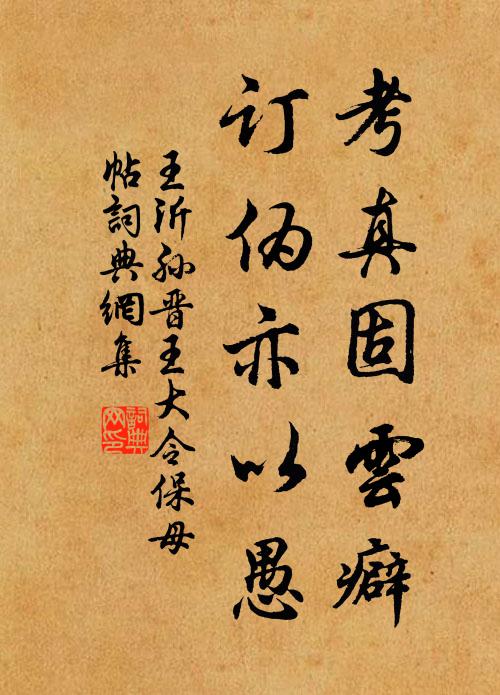 考真固雲癖
订伪亦以愚
王沂孙晋王大令保母
帖詞典網集
詞典網印